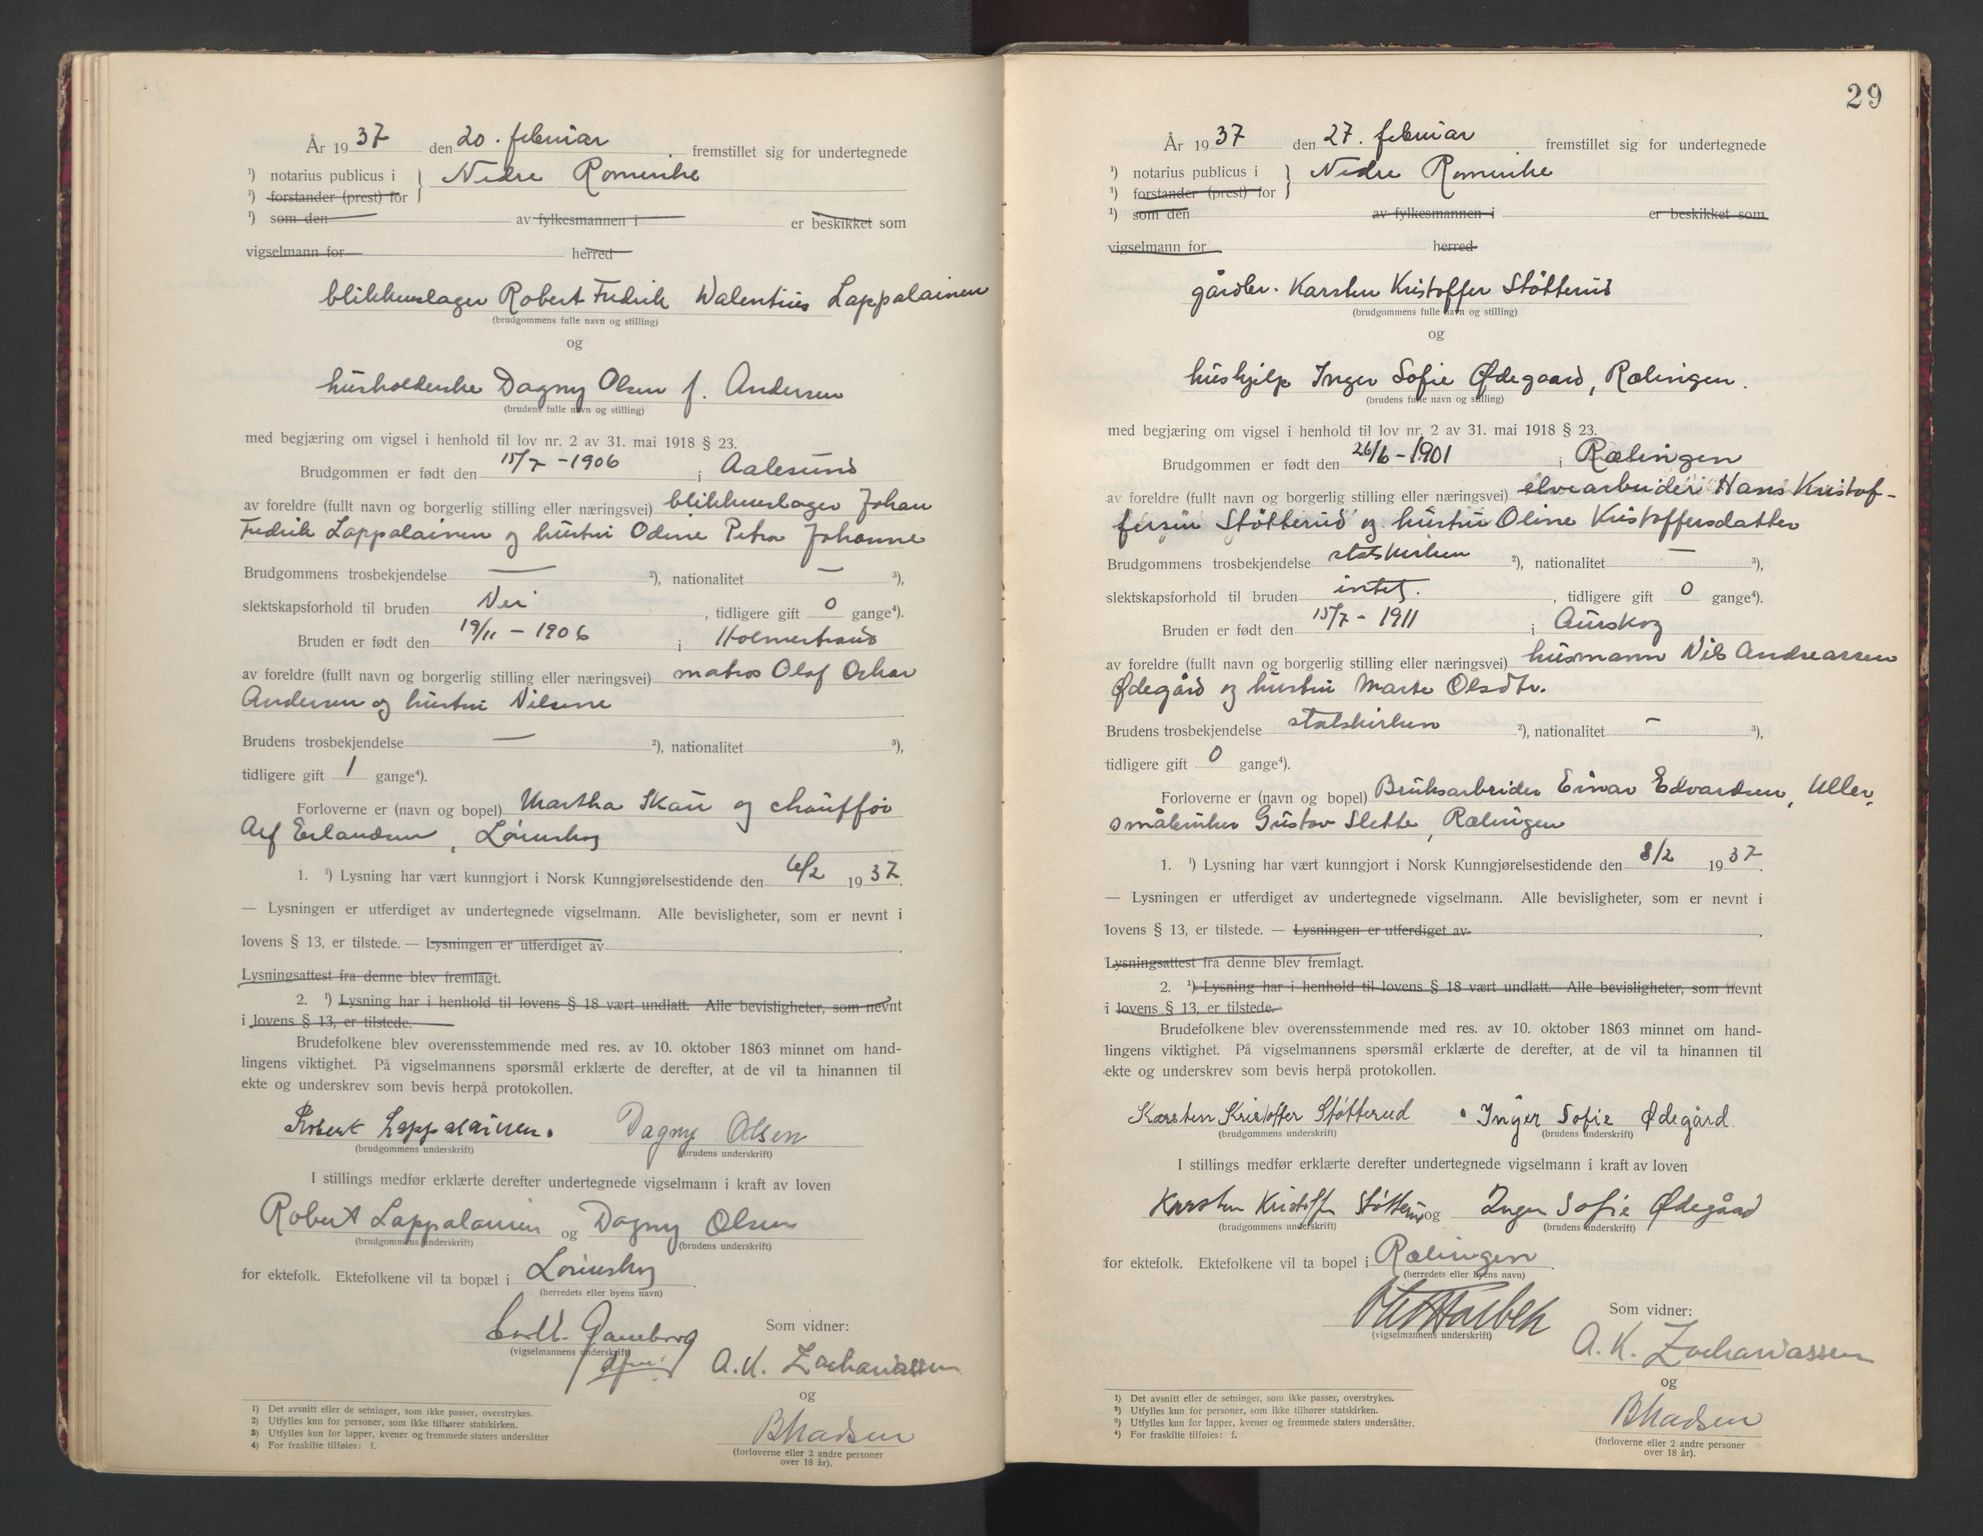 År 1937 den 20. februar fremstillet sig for undertegnede
¹) notarius publicus i } Nedre Romerike
¹) forstander (prest) for
¹) som den av fylkesmannen i er beskikket som
vigselmann for herred
blikkenslager Robert Fredrik Walentius Lappalainen
(brudgommens fulle navn og stilling)
og
husholderske Dagny Olsen f. Andersen
(brudens fulle navn og stilling)
med begjæring om vigsel i henhold til lov nr. 2 av 31. mai 1918 § 23.
Brudgommen er født den 15/7 - 1906 i Aalesund
av foreldre (fullt navn og borgerlig stilling eller næringsvei) blikkenslager Johan
Fredrik Lappalainen og hustru Odine Petra Johanne
Brudgommens trosbekjendelse — ²), nationalitet — ³),
slektskapsforhold til bruden Nei, tidligere gift 0 gange⁴).
Bruden er født den 19/11 - 1906 i Holmestrand
av foreldre (fullt navn og borgerlig stilling eller næringsvei) matros Olaf Oskar
Andersen og hustru Nilsine
Brudens trosbekjendelse — ²), nationalitet ³),
tidligere gift 1 gange⁴).
Forloverne er (navn og bopel) Martha Skau og chauffør
Alf Erlandsen, Lørenskog
1. ¹) Lysning har vært kunngjort i Norsk Kunngjørelsestidende den 6/2 1937.
— Lysningen er utferdiget av undertegnede vigselmann. Alle bevisligheter, som er nevnt i
lovens § 13, er tilstede. — Lysningen er utferdiget av
Lysningsattest fra denne blev fremlagt.
2. ¹) Lysning har i henhold til lovens § 18 vært undlatt. Alle bevisligheter, som nevnt
i lovens § 13, er tilstede.
Brudefolkene blev overensstemmende med res. av 10. oktober 1863 minnet om hand-
lingens viktighet. På vigselmannens spørsmål erklærte de derefter, at de vil ta hinannen til
ekte og underskrev som bevis herpå protokollen.
Robert Lappalainen. Dagny Olsen
(brudgommens underskrift) (brudens underskrift)
I stillings medfør erklærte derefter undertegnede vigselmann i kraft av loven
Robert Lappalainen og Dagny Olsen
(brudgommens underskrift) (brudens underskrift)
for ektefolk. Ektefolkene vil ta bopæl i Lørenskog.
(herredets eller byens navn)
(vigselmannens underskrift)
Som vidner:
A. K. Zachariassen
og
B Madsen
(forloverne eller 2 andre personer
over 18 år).
1) Det avsnitt eller de setninger, som ikke passer, overstrykes.
2) Utfylles kun for personer, som ikke tilhører statskirken.
3) Utfylles kun for lapper, kvener og fremmede staters undersåtter
4) For fraskilte tilføies: f.
29
År 1937 den 27. februar fremstillet sig for undertegnede
¹) notarius publicus i } Nedre Romerike
¹) forstander (prest) for
¹) som den av fylkesmannen i er beskikket som
vigselmann for herred
gårdbr. Karsten Kristoffer Støtterud
(brudgommens fulle navn og stilling)
og
hushjelp Inger Sofie Ødegaard, Rælingen.
(brudens fulle navn og stilling)
med begjæring om vigsel i henhold til lov nr. 2 av 31. mai 1918 § 23.
Brudgommen er født den 26/6 - 1901 i Rælingen
av foreldre (fullt navn og borgerlig stilling eller næringsvei) elvearbeider Hans Kristof-
fersen Støtterud og hustru Oline Kristoffersdatter
Brudgommens trosbekjendelse statskirken ²), nationalitet — ³),
slektskapsforhold til bruden intet., tidligere gift 0 gange⁴).
Bruden er født den 15/7 - 1911 i Aurskog
av foreldre (fullt navn og borgerlig stilling eller næringsvei) husmann Nils Andreassen
Ødegård og hustru Marte Olsdtr.
Brudens trosbekjendelse statskirken ²), nationalitet — ³),
tidligere gift 0 gange⁴).
Forloverne er (navn og bopel) Bruksarbeider Einar Edvardsen, Uller,
småbruker Gustav Slette, Rælingen
1. ¹) Lysning har vært kunngjort i Norsk Kunngjørelsestidende den 8/2 1937.
— Lysningen er utferdiget av undertegnede vigselmann. Alle bevisligheter, som er nevnt i
lovens § 13, er tilstede. — Lysningen er utferdiget av
Lysningsattest fra denne blev fremlagt.
2. ¹) Lysning har i henhold til lovens § 18 vært undlatt. Alle bevisligheter, som nevnt
i lovens § 13, er tilstede.
Brudefolkene blev overensstemmende med res. av 10. oktober 1863 minnet om hand-
lingens viktighet. På vigselmannens spørsmål erklærte de derefter, at de vil ta hinannen til
ekte og underskrev som bevis herpå protokollen.
Karsten Kristoffer Støtterud Inger Sofie Ødegård.
(brudgommens underskrift) (brudens underskrift)
I stillings medfør erklærte derefter undertegnede vigselmann i kraft av loven
Karsten Kristoffer Støtterud og Inger Sofie Ødegård
(brudgommens underskrift) (brudens underskrift)
for ektefolk. Ektefolkene vil ta bopel i Rælingen.
(herredets eller byens navn)
(vigselmannens underskrift)
Som vidner:
A. K. Zachariassen
og
B Madsen
(forloverne eller 2 andre personer
over 18 år).
¹) Det avsnitt eller de setninger, som ikke passer, overstrykes.
²) Utfylles kun for personer, som ikke tilhører statskirken.
³) Utfylles kun for lapper, kvener og fremmede staters undersåtter.
⁴) For fraskilte tilføies: f.